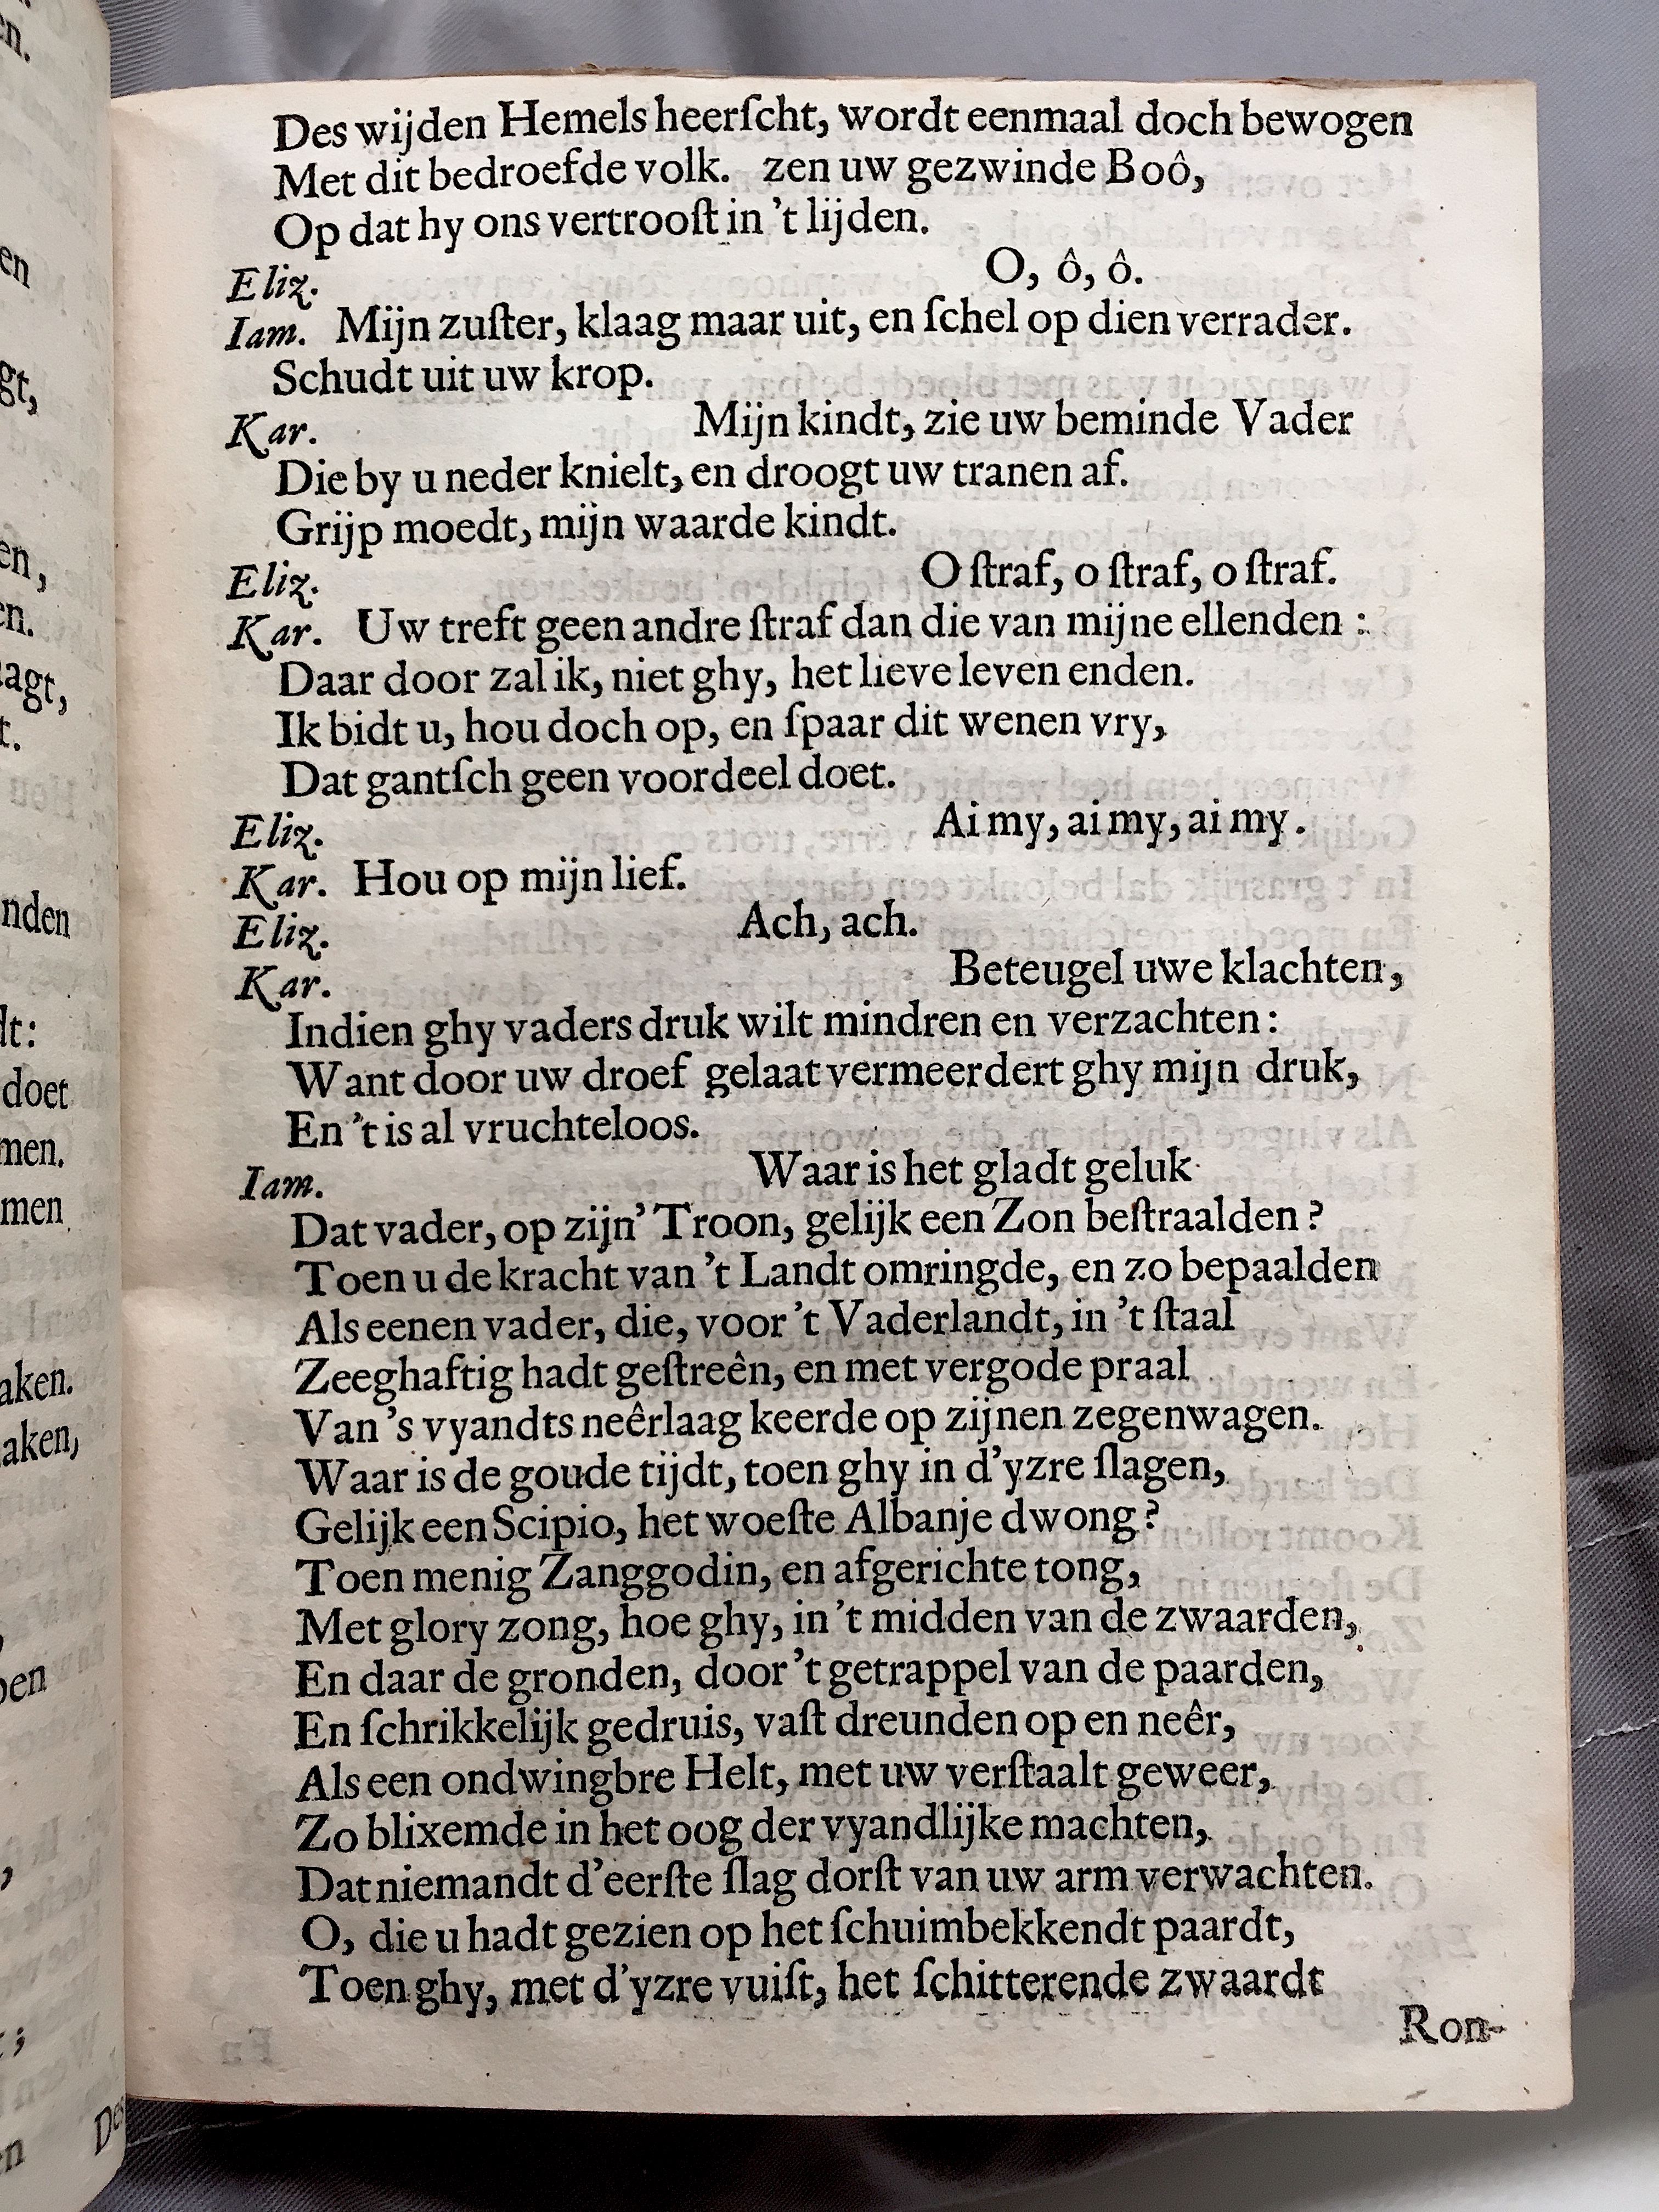 Des wijden Hemels heerſcht, wordt eenmaal doch bewogen
Met dit bedroefde volk. zen uw gezwinde Boô,
Op dat hy ons vertrooſt in 't lijden.
Eliz. O, ô, ô.
Iam. Mijn zuſter, klaag maar uit, en ſchel op dien verrader.
Schudt uit uw krop.
Kar. Mijn kindt, zie uw beminde Vader
Die by u neder knielt, en droogt uw tranen af.
Grijp moedt, mijn waarde kindt.
Eliz. O ſtraf, o ſtraf, o ſtraf.
Kar. Uw treft geen andre ſtraf dan die van mijne ellenden:
Daar door zal ik, niet ghy, het lieve leven enden.
Ik bidt u, hou doch op, en ſpaar dit wenen vry,
Dat gantſch geen voordeel doet.
Eliz. Ai my, ai my, ai my.
Kar. Hou op mijn lief.
Eliz. Ach, ach.
Kar. Beteugel uwe klachten,
Indien ghy vaders druk wilt mindren en verzachten:
Want door uw droef gelaat vermeerdert ghy mijn druk,
En 't is al vruchteloos.
Iam. Waar is het gladt geluk
Dat vader, op zijn' Troon, gelijk een Zon beſtraalden?
Toen u de kracht van 't Landt omringde, en zo bepaalden
Als eenen vader, die, voor 't Vaderlandt, in 't ſtaal
Zeeghaftig hadt geſtreên, en met vergode praal
Van 's vyandts neêrlaag keerde op zijnen zegenwagen.
Waar is de goude tijdt, toen ghy in d'yzre ſlagen,
Gelijk een Scipio, het woeſte Albanje dwong?
Toen menig Zanggodin, en afgerichte tong,
Met glory zong, hoe ghy, in 't midden van de zwaarden,
En daar de gronden, door 't getrappel van de paarden,
En ſchrikkelijk gedruis, vaſt dreunden op en neêr,
Als een ondwingbre Helt, met uw verſtaalt geweer,
Zo blixemde in het oog der vyandlijke machten,
Dat niemandt d'eerſte ſlag dorſt van uw arm verwachten.
O, die u hadt gezien op het ſchuimbekkendt paardt,
Toen ghy, met d'yzre vuiſt, het ſchitterende zwaardt
Ron-